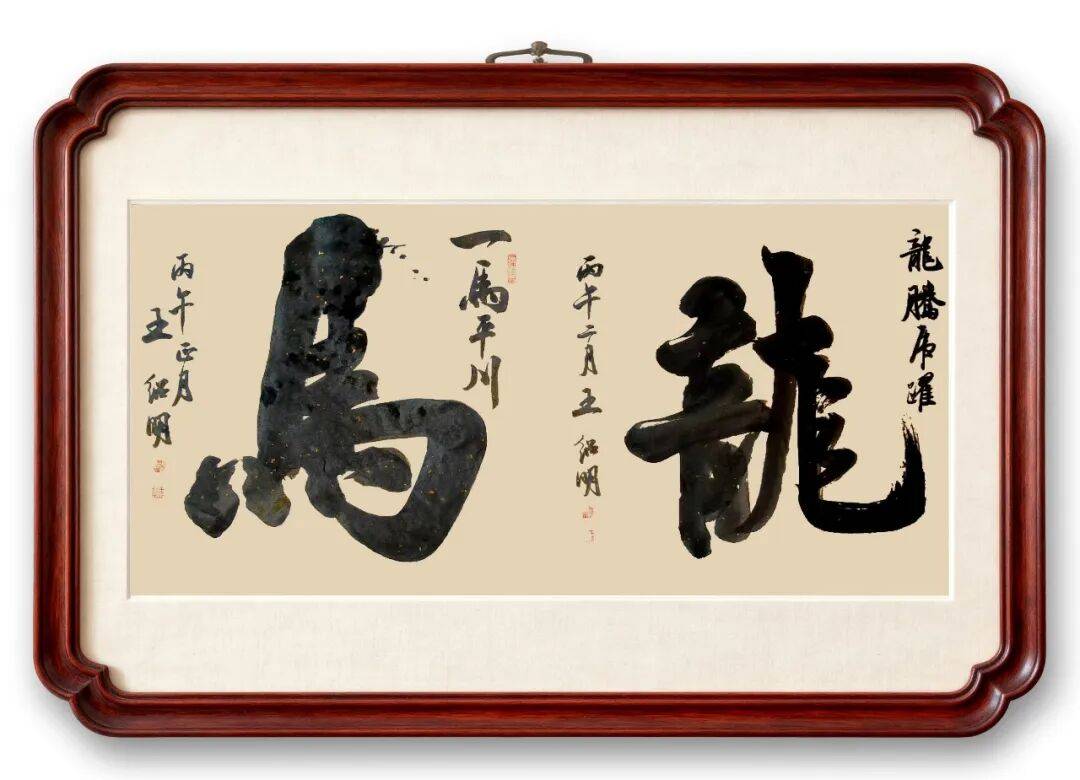 龍騰虎躍
龍
丙午二月 王紹明
一馬平川
馬
丙午正月
王紹明